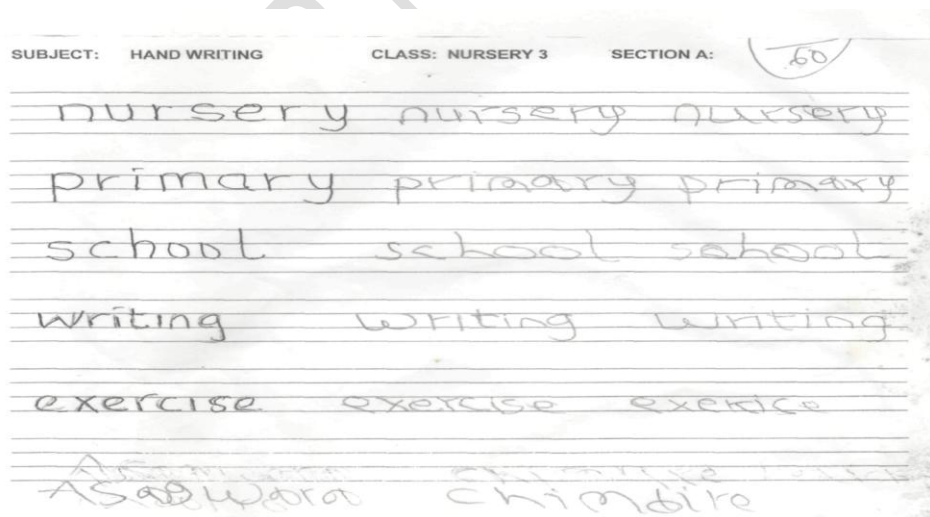 SUBJECT: HAND WRITING CLASS: NURSERY 3 SECTION A: 60
nursery nursery nursery
primary primary primary
school school school
writing writing writing
exercise exercise